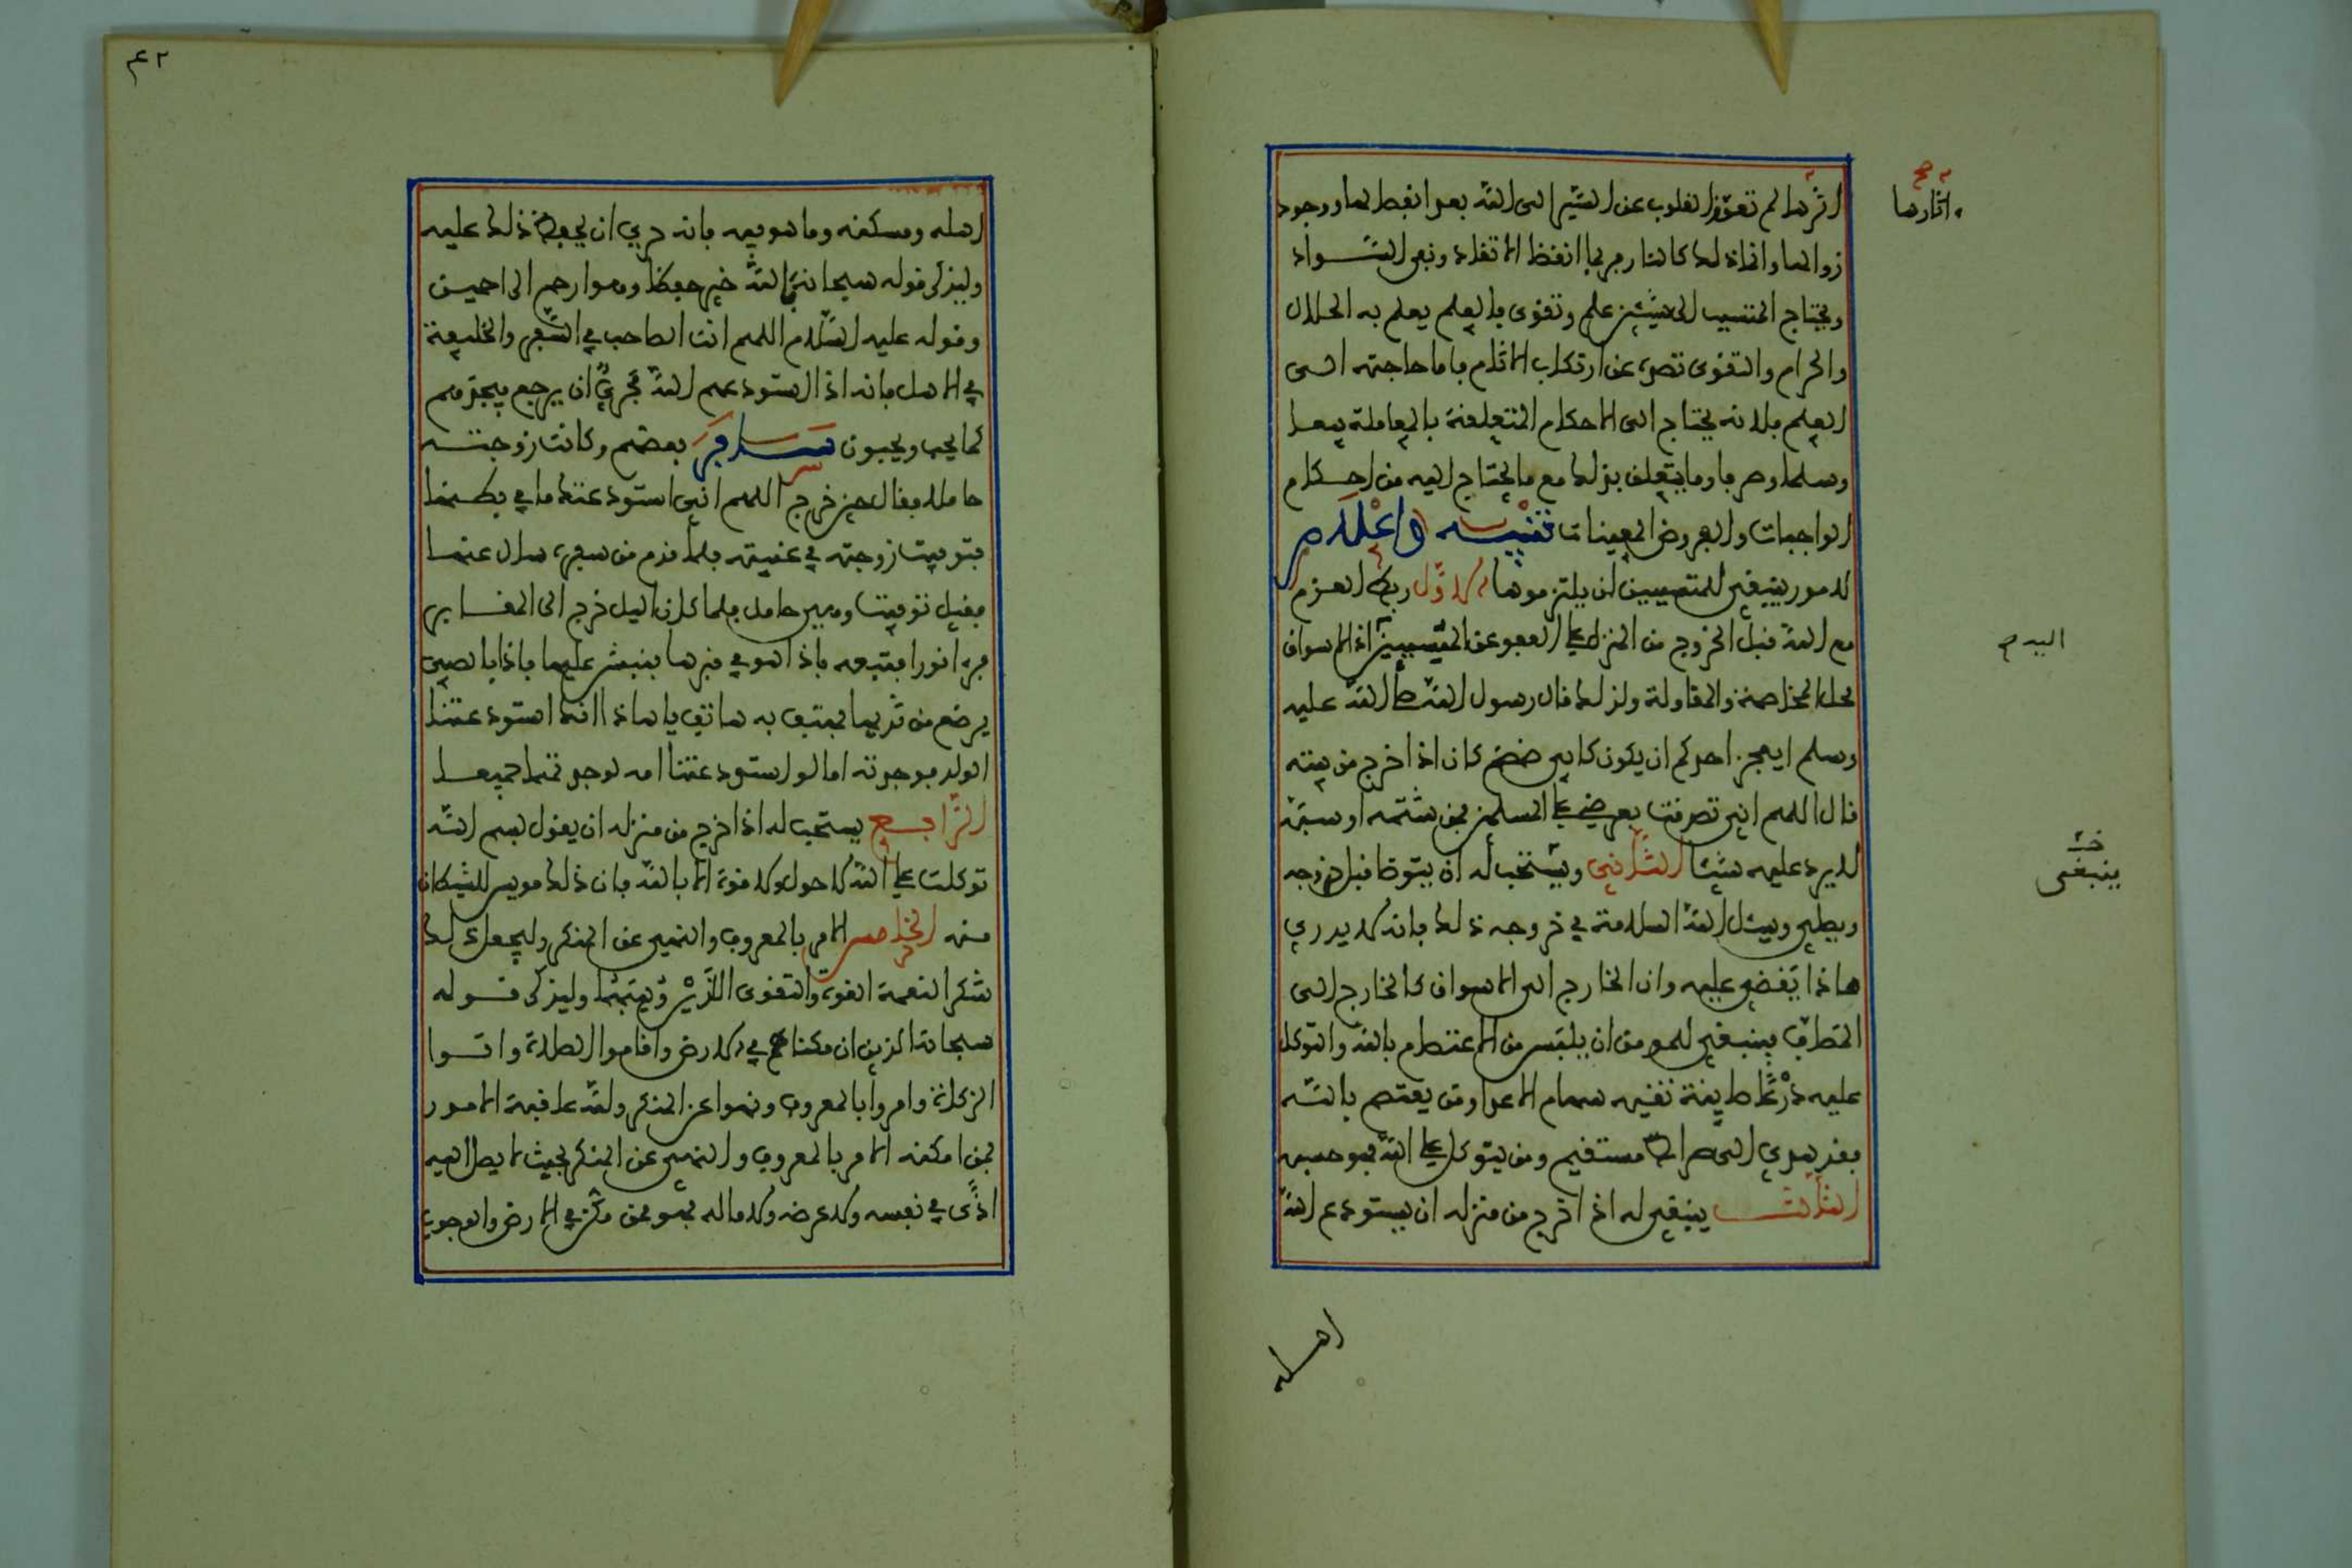 اثرها لم تعوق القلوب عن السير الى الله بعد انفصالها ووجود
زوالها وانما ذلك كالنار ربما انفظ الاتقاد وبقي السواد
ويحتاج المتسبب الى شيئين علم وتقوى بالعلم يعلم به الحلال
والحرام والتقوى تصده عن ارتكاب الاثام باما حاجته الى
العلم بلانه يحتاج الى الاحكام المتعلقة بالمعاملة بيعا
وسلما وصرفا وما يتعلق بذلك مع ما يحتاج اليه من احكام
الواجبات والفروض المعينات تنبيه واعلام
لامور ينبغي للمتسببين ان يلتزموها الاول ربط العزم
مع الله قبل الخروج من المنزل على العفو عن المتسببين اذ الاسواق
محل المخاصمة والمقاولة ولذلك قال رسول الله صلى الله عليه
وسلم ايعجز احدكم ان يكون كابي ضمضم كان اذا خرج من بيته
قال اللهم اني تصدقت بعرضي على المسلمين فمن شتمه او سبه
لا يرد عليه شيئا الثاني ويستحب له ان يتوضا قبل خروجه
ويصلي ويسئل الله السلامة في خروجه ذلك بانه لا يدري
ماذا يقضى عليه وان الخارج الى الاسواق كالخارج الى
المصاف فينبغي للمومن ان يلبس من الاعتصام بالله والتوكل
عليه درعا طايفة تقيه سهام الاعداء ومن يعتصم بالله
فقد هدي الى صراط مستقيم ومن يتوكل على الله فهو حسبه
الثالث ينبغي له اذا خرج من منزله ان يستودع الله
اهله
اثارها صح
البدم
ينبغي خ
٤٢
اهله ومسكنه وما هو فيه بانه حري ان يحفظ ذلك عليه
وليذكر قوله سبحانه فالله خير حفظا وهو ارحم الراحمين
وقوله عليه السلام اللهم انت الصاحب في السفر والخليفة
في الاهل بانه اذا استودعهم الله فحري ان يرجع فيجدهم
كما يحب ويحبون سافر بعضهم وكانت زوجته
حاملا فقال حين خرج اللهم اني استودعتك ما في بطنها
فتوفيت زوجته في غيبته فلما قدم من سفره سال عنها
فقيل توفيت وهي حامل فلما كان الليل خرج الى المقابر
فرءا نورا فتبعه فاذا هو في قبرها فنبش عليها فاذا بالصبي
يرضع من ثديها فهتف به هاتف يا هاذا انك استودعتنا
الولد فوجدته اما لو استودعتنا امه لوجدتهما جميعا
الرابع يستحب له اذا خرج من منزله ان يقول بسم الله
توكلت على الله لا حول ولا قوة الا بالله بان ذلك مويس للشيطان
منه الخامس الامر بالمعروف والنهي عن المنكر وليجعل ذلك
شكر النعمة القوة والتقوى اللذين وهبهما وليذكر قوله
سبحانه الذين ان مكناهم في الارض واقاموا الصلاة واتوا
الزكاة وامروا بالمعروف ونهوا عن المنكر ولله عاقبة الامور
فمن امكنه الامر بالمعروف والنهي عن المنكر بحيث لا يصل اليه
اذى في نفسه ولا عرضه ولا ماله فهو ممن مكن في الارض والوجوب